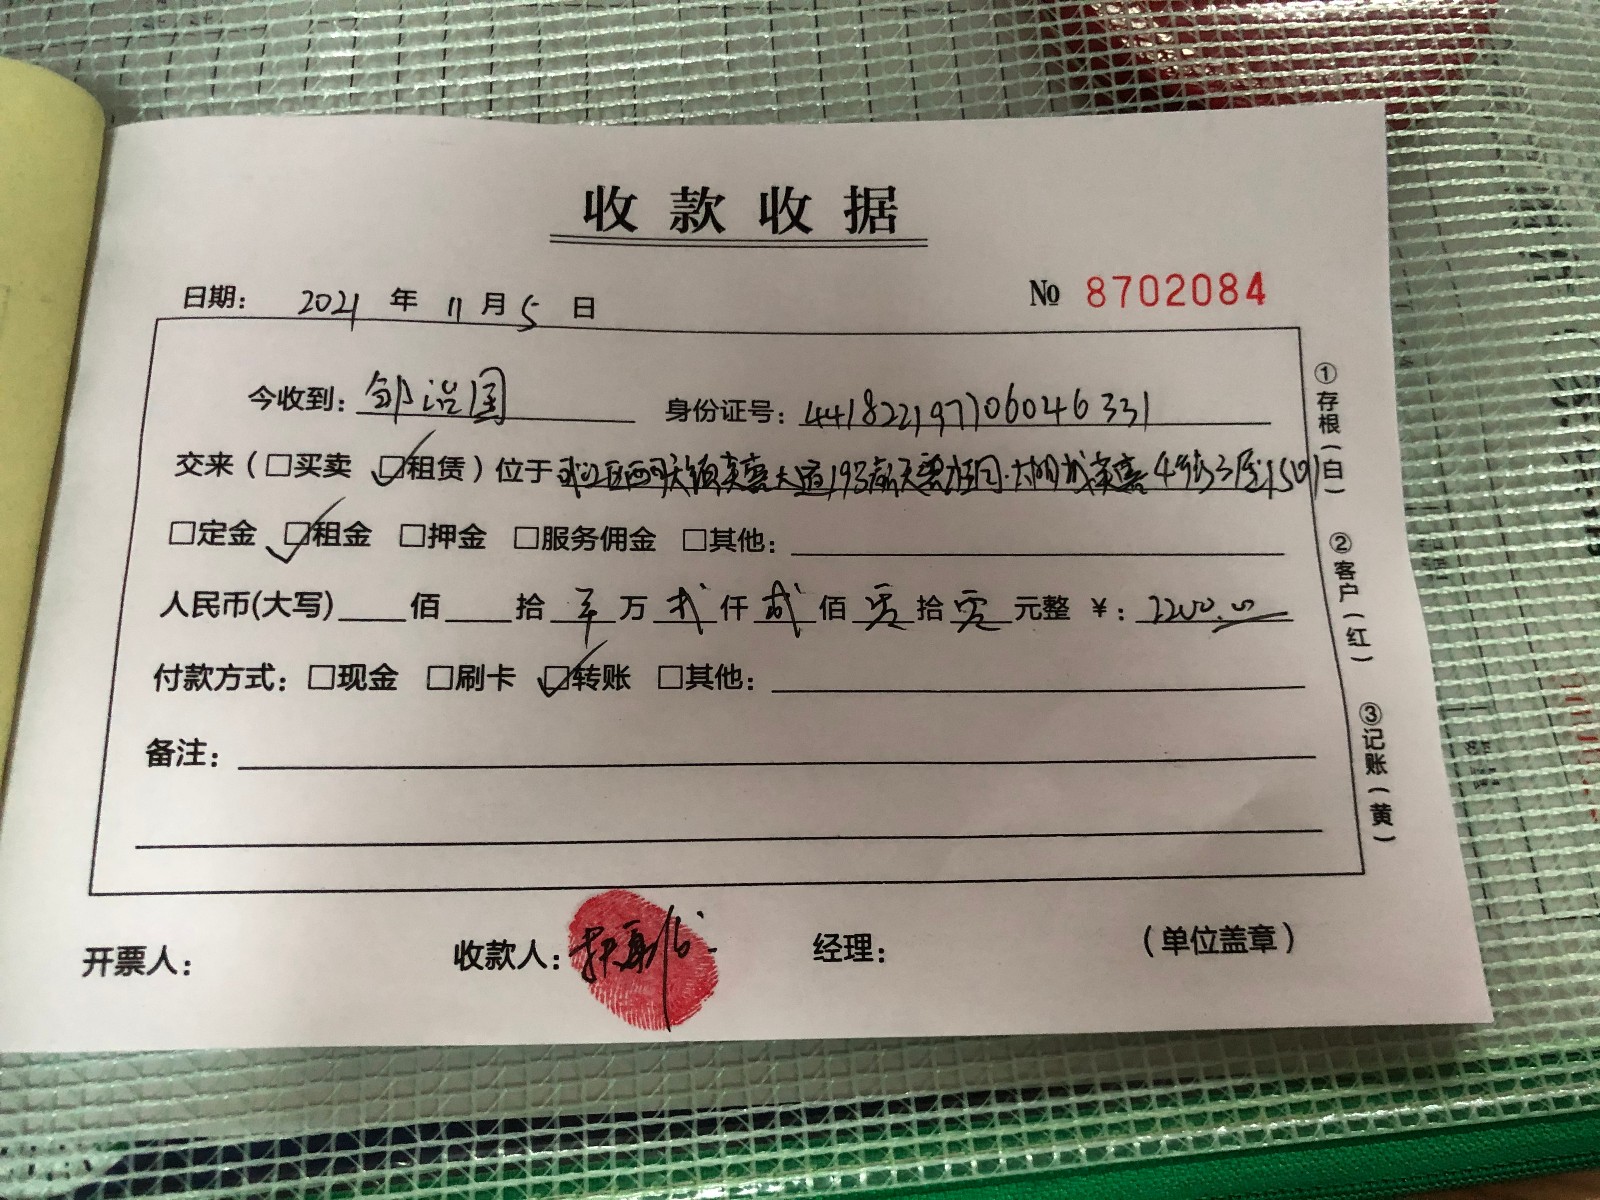 收款收据
日期: 2021 年 11 月 5 日 № 8702084
今收到: 邹治国 身份证号: 441822197706046331
交来(□买卖 ☑租赁)位于 武江区西联镇芙蓉大道193号 4栋 1501
□定金 ☑租金 □押金 □服务佣金 □其他:
人民币(大写) 佰 拾 零 万 贰 仟 贰 佰 零 拾 零 元整 ¥: 2200.00
付款方式: □现金 □刷卡 ☑转账 □其他:
备注:
开票人: 收款人: 经理: (单位盖章)
①存根(白)
②客户(红)
③记账(黄)